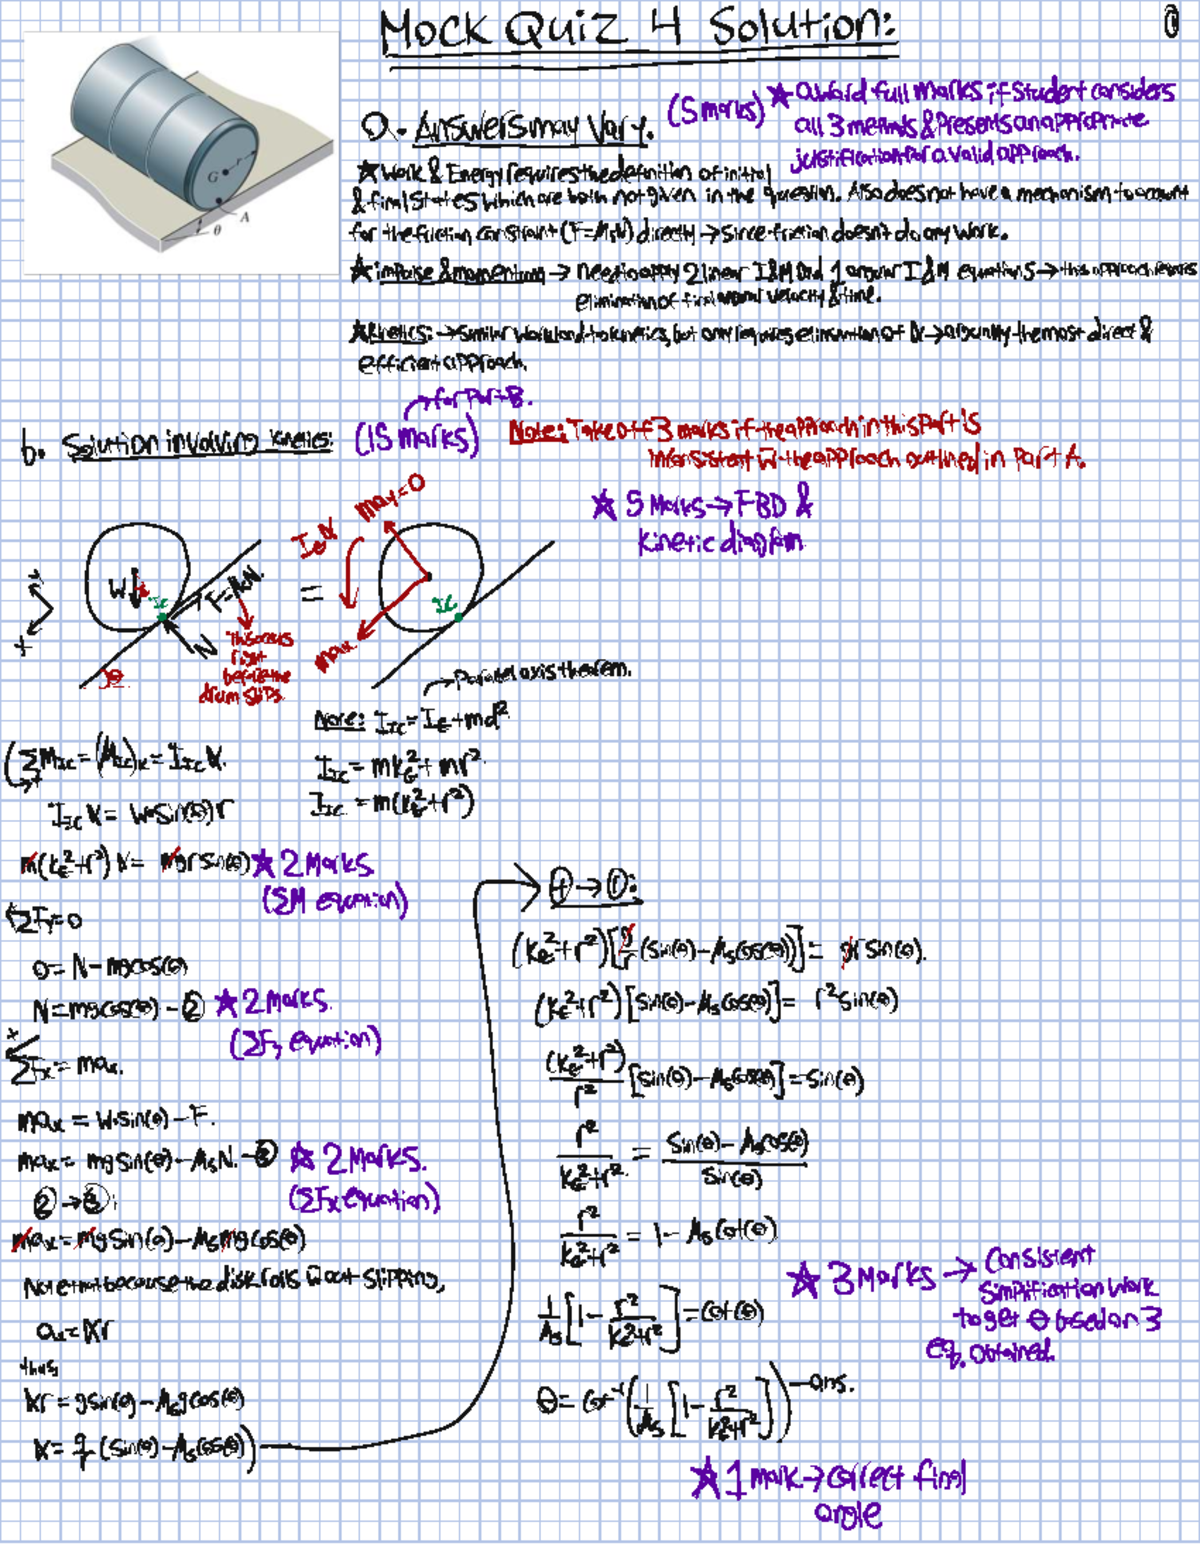 Mock Quiz 4 Solution:
①
G
r
A
θ
a. Answers may vary.
(5 marks)
★ award full marks if student considers
all 3 methods & presents an appropriate
justification for a valid approach.
★ Work & Energy requires the definition of initial
& final states which are both not given in the question. Also does not have a mechanism to account
for the friction constraint (F=μsN) directly → since friction doesn't do any work.
★ impulse & momentum → need to apply 2 linear I&M and 1 angular I&M equations → this approach requires
elimination of final angular velocity & time.
★ Kinetics: → similar workload to kinetics, but only requires elimination of α → arguably the most direct &
efficient approach.
→ for Part B.
b. Solution involving kinetics: (15 marks)
Note: Take off 3 marks if the approach in this part is
inconsistent w the approach outlined in Part A.
★ 5 Marks → FBD &
kinetic diagram
W
IC
F=μsN.
N
θ
this occurs
right
before the
drum slips.
=
IGα
may=0
IC
max
→ Parallel axis theorem.
Note: IIC = IG + md²
IIC = mkG² + mr²
IIC = m(kG²+r²)
ΣMIC = (μIC)k = IIC α.
IIC α = W·sin(θ) r
m(kG²+r²) α = mgr sin(θ)
★ 2 Marks
(ΣM equation)
ΣFy=0
0= N - mgcos(θ)
N=mgcos(θ) - ②
★ 2 Marks.
(ΣFy equation)
ΣFx = max.
max = W·sin(θ) - F.
max = mgsin(θ) - μsN. - ③
★ 2 Marks.
(ΣFx equation)
② → ③:
max = mgsin(θ) - μsmgcos(θ)
Note that because the disk rolls w out slipping,
ax=αr
thus,
αr = gsin(θ) - μsgcos(θ)
α = g/r (sin(θ) - μscos(θ))
④ → ①:
(kG²+r²)[g/r (sin(θ) - μscos(θ))] = gr sin(θ).
(kG²+r²)[sin(θ) - μscos(θ)] = r² sin(θ)
(kG²+r²)/r² [sin(θ) - μscos(θ)] = sin(θ)
r²/(kG²+r²) = (sin(θ) - μscos(θ))/sin(θ)
r²/(kG²+r²) = 1 - μs cot(θ)
★ 3 Marks → Consistent
simplification work
to get θ based on 3
eq. obtained.
1/μs [1 - r²/(kG²+r²)] = cot(θ)
θ = cot⁻¹(1/μs [1 - r²/(kG²+r²)]) - ans.
★ 1 mark → correct final
angle